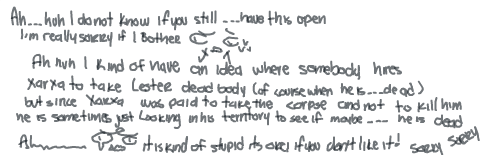 Ah....huh I do not know if you still ....have this open
I'm really sorry if I Bother
Ah huh I kind of have an idea where somebody hires
Xarxa to take Lester dead body (of course when he is....dead)
but since Xarxa was paid to take the corpse and not to kill him
he is sometimes just looking in his territory to see if maybe .... he is dead
Ah....... it is kind of stupid its over if you don't like it! sorry sorry